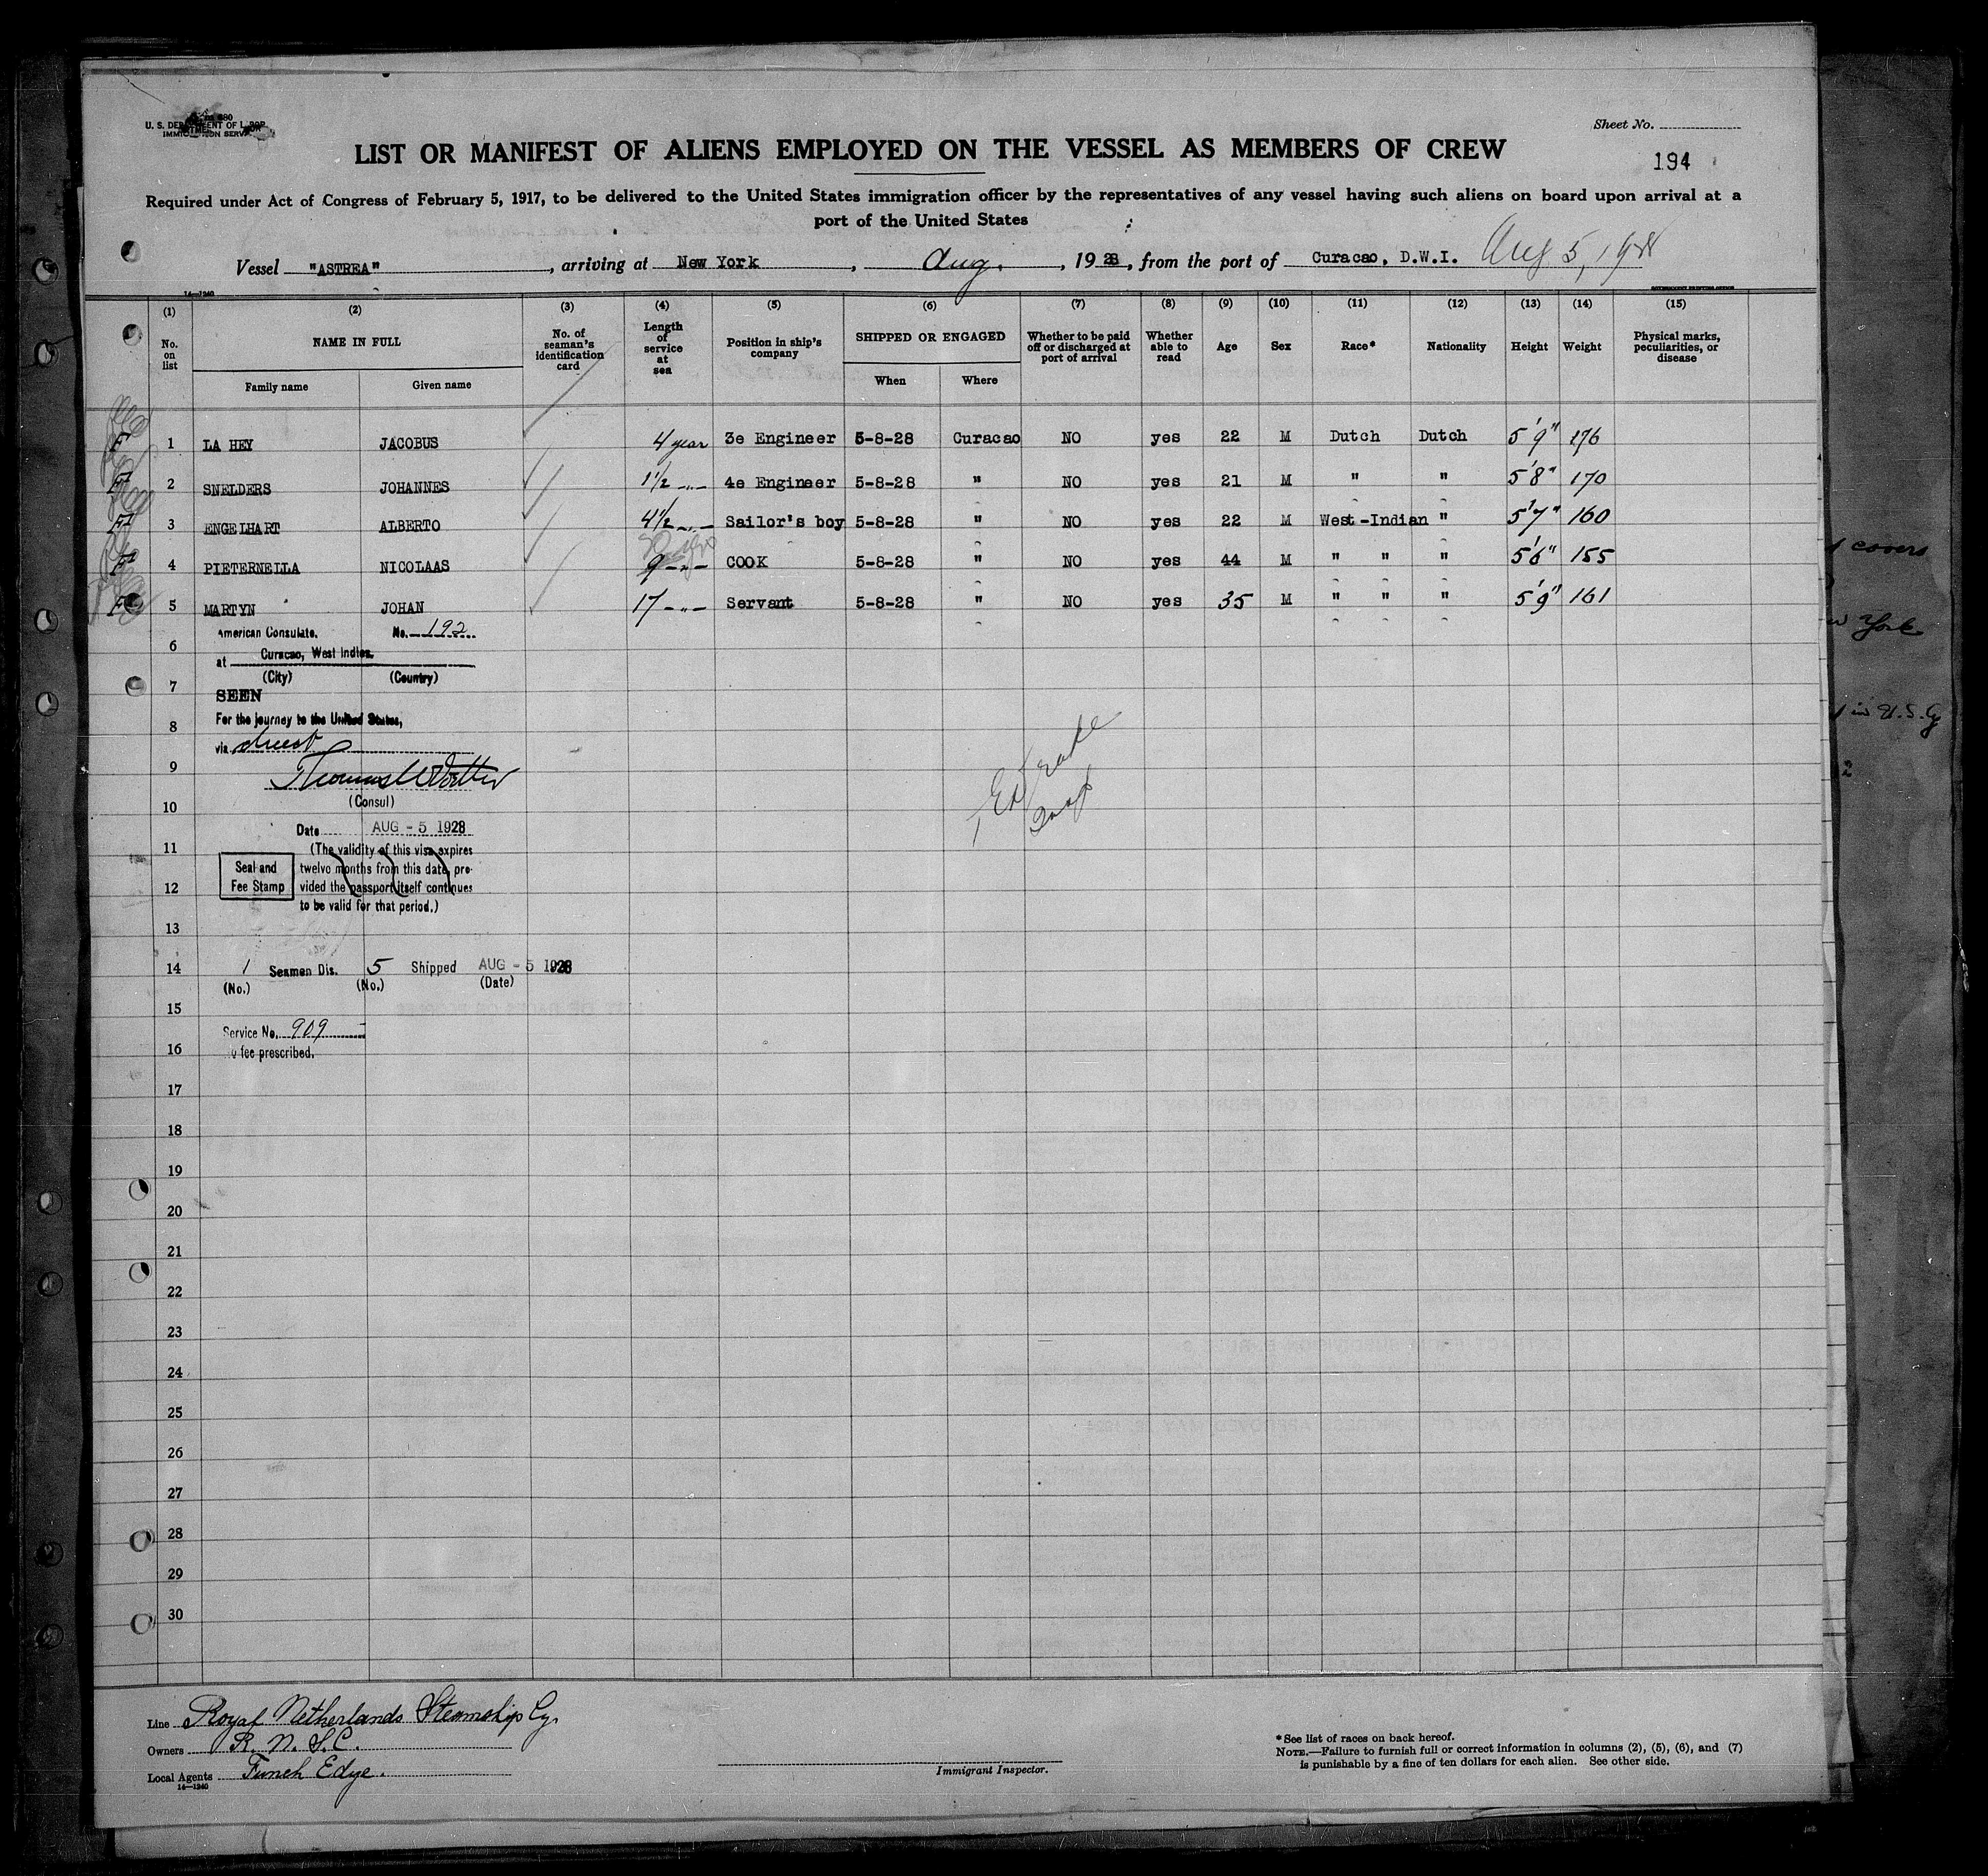 U. S. DEPARTMENT OF LABOR
IMMIGRATION SERVICE
Sheet No.
LIST OR MANIFEST OF ALIENS EMPLOYED ON THE VESSEL AS MEMBERS OF CREW
194
Required under Act of Congress of February 5, 1917, to be delivered to the United States immigration officer by the representatives of any vessel having such aliens on board upon arrival at a
port of the United States
Vessel "ASTREA", arriving at New York, Aug., 1928, from the port of Curacao, D.W.I. Aug 5, 1928
14—1240
GOVERNMENT PRINTING OFFICE
(1) (2) (3) (4) (5) (6) (7) (8) (9) (10) (11) (12) (13) (14) (15)
No. on list NAME IN FULL No. of seaman's identification card Length of service at sea Position in ship's company SHIPPED OR ENGAGED Whether to be paid off or discharged at port of arrival Whether able to read Age Sex Race* Nationality Height Weight Physical marks, peculiarities, or disease
Family name Given name When Where
F 1 LA HEY JACOBUS 4 year 3e Engineer 5-8-28 Curacao NO yes 22 M Dutch Dutch 5'9" 176
2 SNELDERS JOHANNES 1½ -"- 4e Engineer 5-8-28 " NO yes 21 M " " 5'8" 170
3 ENGELHART ALBERTO 4½ -"- Sailor's boy 5-8-28 " NO yes 22 M West-Indian " 5'7" 160
4 PIETERNELLA NICOLAAS 9 -"- COOK 5-8-28 " NO yes 44 M " " " 5'6" 155
5 MARTYN JOHAN 17 -"- Servant 5-8-28 " NO yes 35 M " " " 5'9" 161
American Consulate. No. 192
6
at Curacao, West Indies.
(City) (Country)
7
SEEN
For the journey to the United States,
8
via direct
9
(Consul)
10
Date AUG - 5 1928
11
(The validity of this visa expires
Seal and twelve months from this date, pro-
12
Fee Stamp vided the passport itself continues
to be valid for that period.)
13
14
1 Seamen Dis. 5 Shipped AUG - 5 1928
(No.) (No.) (Date)
15
Service No. 909
16
No fee prescribed.
17
18
19
20
21
22
23
24
25
26
27
28
29
30
Line Royal Netherlands Steamship Cy.
Owners R. N. S. C.
Local Agents Funch Edye.
14—1240
Immigrant Inspector.
*See list of races on back hereof.
NOTE.—Failure to furnish full or correct information in columns (2), (5), (6), and (7)
is punishable by a fine of ten dollars for each alien. See other side.
covers
York
in U.S. Cy
2